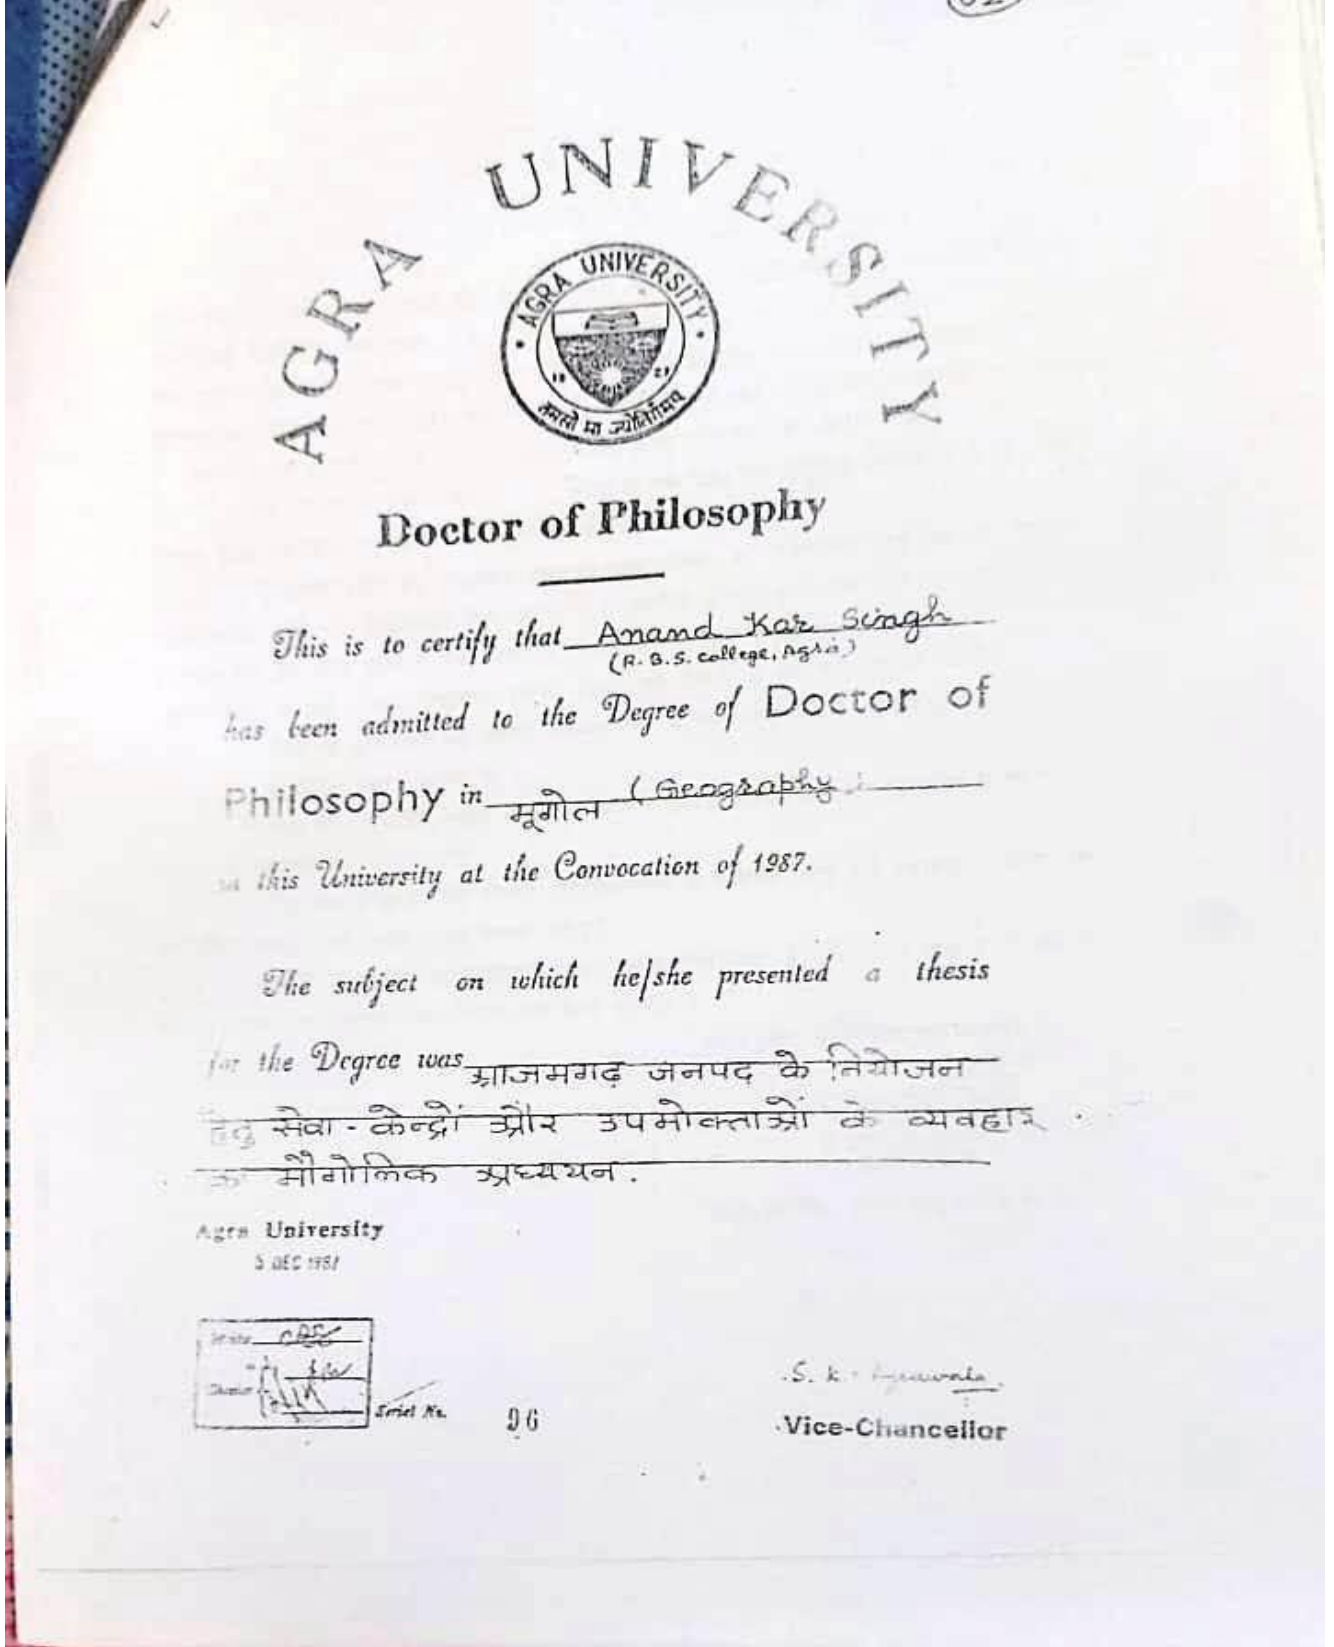 AGRA UNIVERSITY
AGRA UNIVERSITY
तमसो मा ज्योतिर्गमय
Doctor of Philosophy
This is to certify that Anand Kar Singh
(R. B. S. College, Agra)
has been admitted to the Degree of Doctor of
Philosophy in भूगोल (Geography)
in this University at the Convocation of 1987.
The subject on which he/she presented a thesis
for the Degree was आजमगढ़ जनपद के नियोजन
हेतु सेवा - केन्द्रों और उपभोक्ताओं के व्यवहार
का भौगोलिक अध्ययन.
Agra University
5 DEC 1987
Serial No. 96
S. K.
Vice-Chancellor